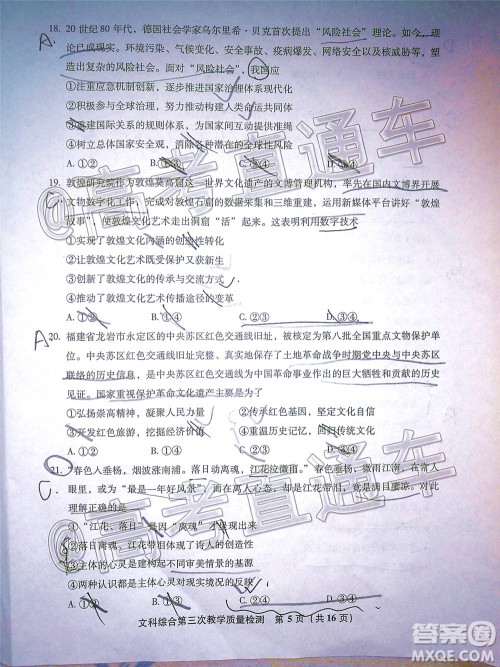 18. 20世纪80年代，德国社会学家乌尔里希·贝克首次提出“风险社会”理论。如今，理
A.
论已成现实。环境污染、气候变化、安全事故、疫病爆发、网络安全以及核威胁等，塑
造出复杂的风险社会。面对“风险社会”，我国应
①注重应急机制创新，谋求推进国家治理体系现代化
②积极参与全球治理，推动构建人类命运共同体
③重建国际关系的规则体系，为国家安全开辟绿洲
④树立总体国家安全观，消除潜在的全球性风险
A. ①② B. ①③ C. ②④ D. ③④
19. 敦煌研究院作为敦煌莫高窟这一世界文化遗产的文博管理机构，率先在国内文博界开展
C.
文物数字化工作，完成对敦煌石窟的数字还原、三维重建，运用新媒体平台讲好“敦煌
故事”，使敦煌文化艺术走出洞窟“活”起来。这表明利用数字技术
①实现了敦煌文化内涵的创造性转化
②让敦煌文化艺术既受保护又获新生
③创新了敦煌文化的传承与交流方式
④推动了敦煌文化艺术传播途径的变革
A. ①② B. ①④ C. ②③ D. ③④
A
20. 福建省龙岩市永定区的中央苏区红色交通线旧址，被核定为第八批全国重点文物保护单
位。中央苏区红色交通线旧址完整、真实地保存了土地革命战争时期党中央与中央苏区
联络的历史信息，是中央苏区红色交通线为中国革命事业作出的巨大牺牲和贡献的历史
见证。国家重视保护革命文化遗产主要是为了
①弘扬崇高精神，凝聚人民力量 ②传承红色基因，坚定文化自信
③开发红色旅游，挖掘经济价值 ④重温历史记忆，回归传统文化
A. ①② B. ①③ C. ②④ D. ③④
21. “春色人垂杨，烟波涨南浦。落日动离魂，江花泣微雨。”垂杨烟波，微雨江花，在游
C.
人眼里，或为“最是一年好风景”，而在离人心态，则是满目萋凉。对此，
理解正确的是
①“江花、落日”因“离魂”才得现出来
②落日离魂、江花带泪体现了诗人的创造性
③江花带泪体现了主体的不同审美情景的基础
④两种认识都是主体的心灵对现实境况的反映
A. ①② B. ①③ C. ②④ D. ③④
文科综合第三次教学质量检测 第 5 页（共 16 页）
@高考直通车
@高考直通车
答案圈
MXQE.COM